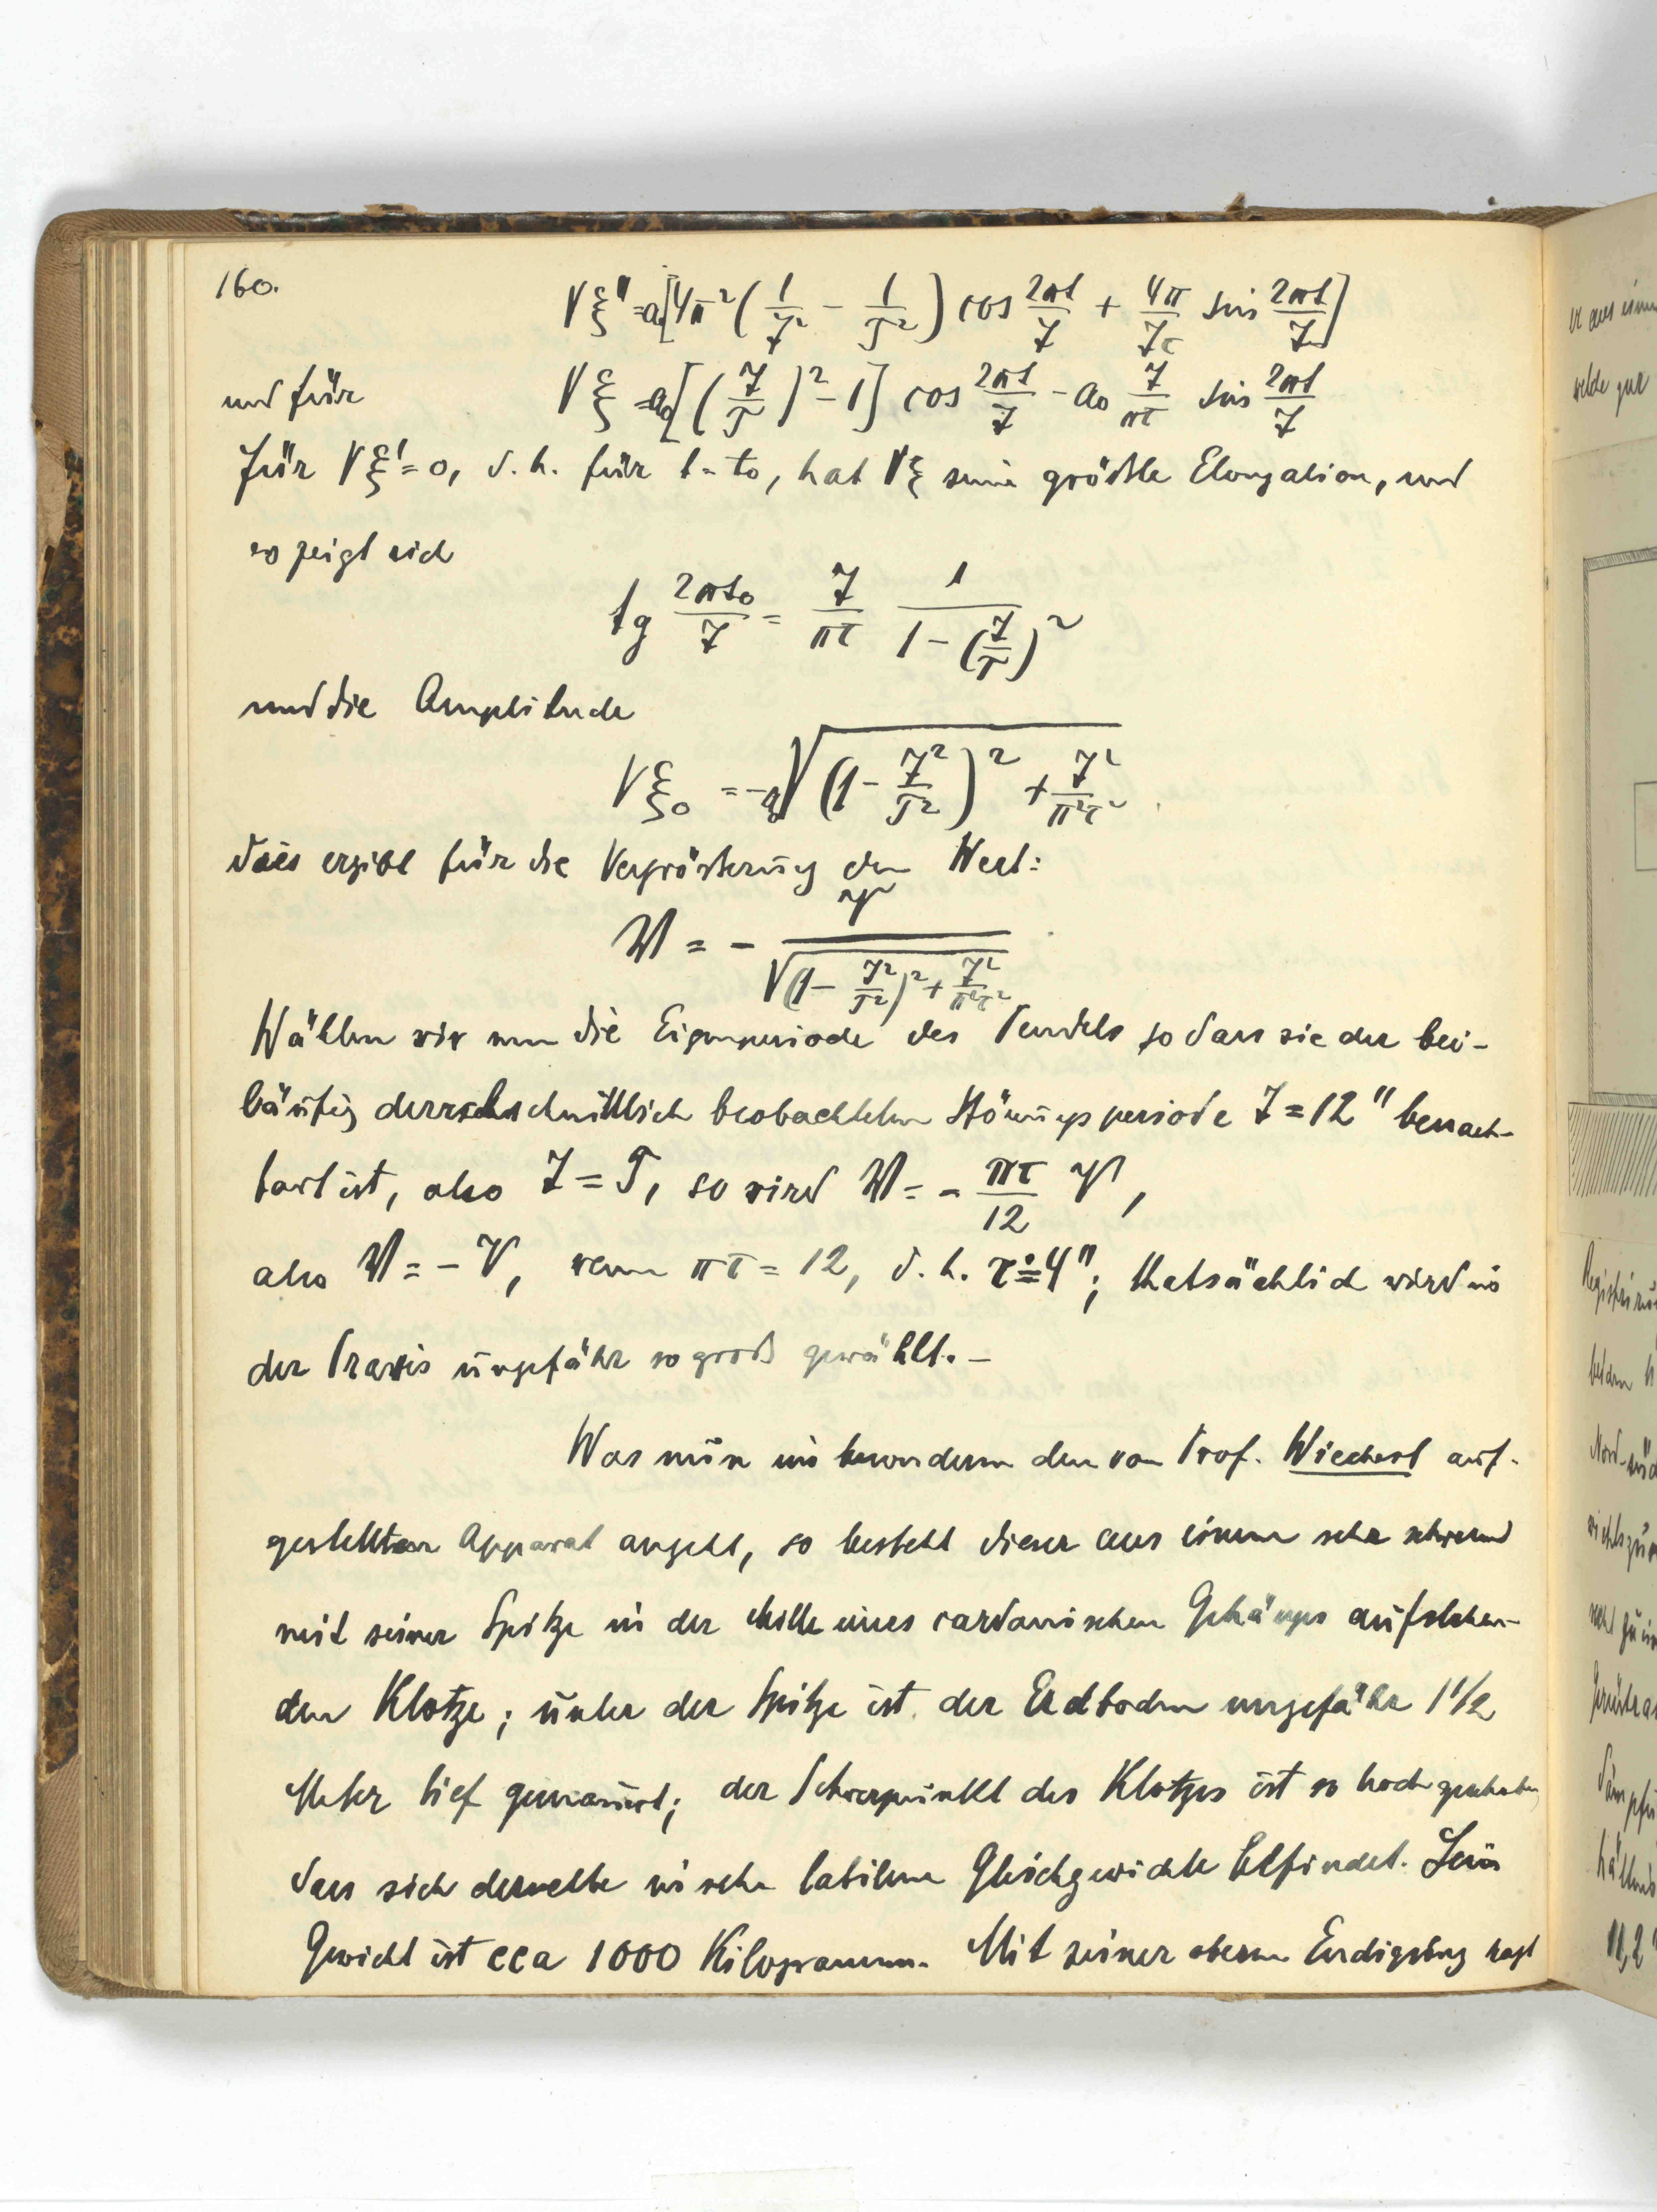 160.
Vξ'' = a₀[4π² (1/T² − 1/𝒯²) cos 2πt/T + 4π/Tτ sin 2πt/T]
und für Vξ = a₀[(T/𝒯)² − 1] cos 2πt/T − a₀ T/πτ sin 2πt/T
für Vξ' = 0, d. h. für t = t₀, hat Vξ seine größte Elongation, und
es zeigt sich
tg 2πt₀/T = T/πτ 1/(1 − (T/𝒯)²)
und die Amplitude
Vξ₀ = −a₀ √((1 − T²/𝒯²)² + T²/π²τ²)
dies ergibt für die Vergrösserung den Wert:
W = − V/√((1 − T²/𝒯²)² + T²/π²τ²)
Wählen wir nun die Eigenperiode des Pendels so dass sie der bei-
läufig durchschnittlich beobachteten Störungsperiode T = 12" benach-
bart ist, also T = 𝒯, so wird W = − πτ/12 V,
also W = − V, wenn πτ = 12, d. h. τ ≐ 4"; thatsächlich wird in
der Praxis ungefähr so groß gewählt. –
Was nun im besonderen den von Prof. Wiechert auf-
gestellten Apparat angeht, so besteht dieser aus einem sehr schweren
mit seiner Spitze in der Mitte eines cardanischen Gehänges aufstehen-
den Klotze; unter der Spitze ist der Erdboden ungefähr 1 1/2
Meter tief gemauert; der Schwerpunkt des Klotzes ist so hoch gehoben
dass sich derselbe in sehr labilem Gleichgewichte befindet. Sein
Gewicht ist cca 1000 Kilogramm. Mit seiner oberen Endigung ragt
er aus einem
welche zur
Nord-süd
11,2